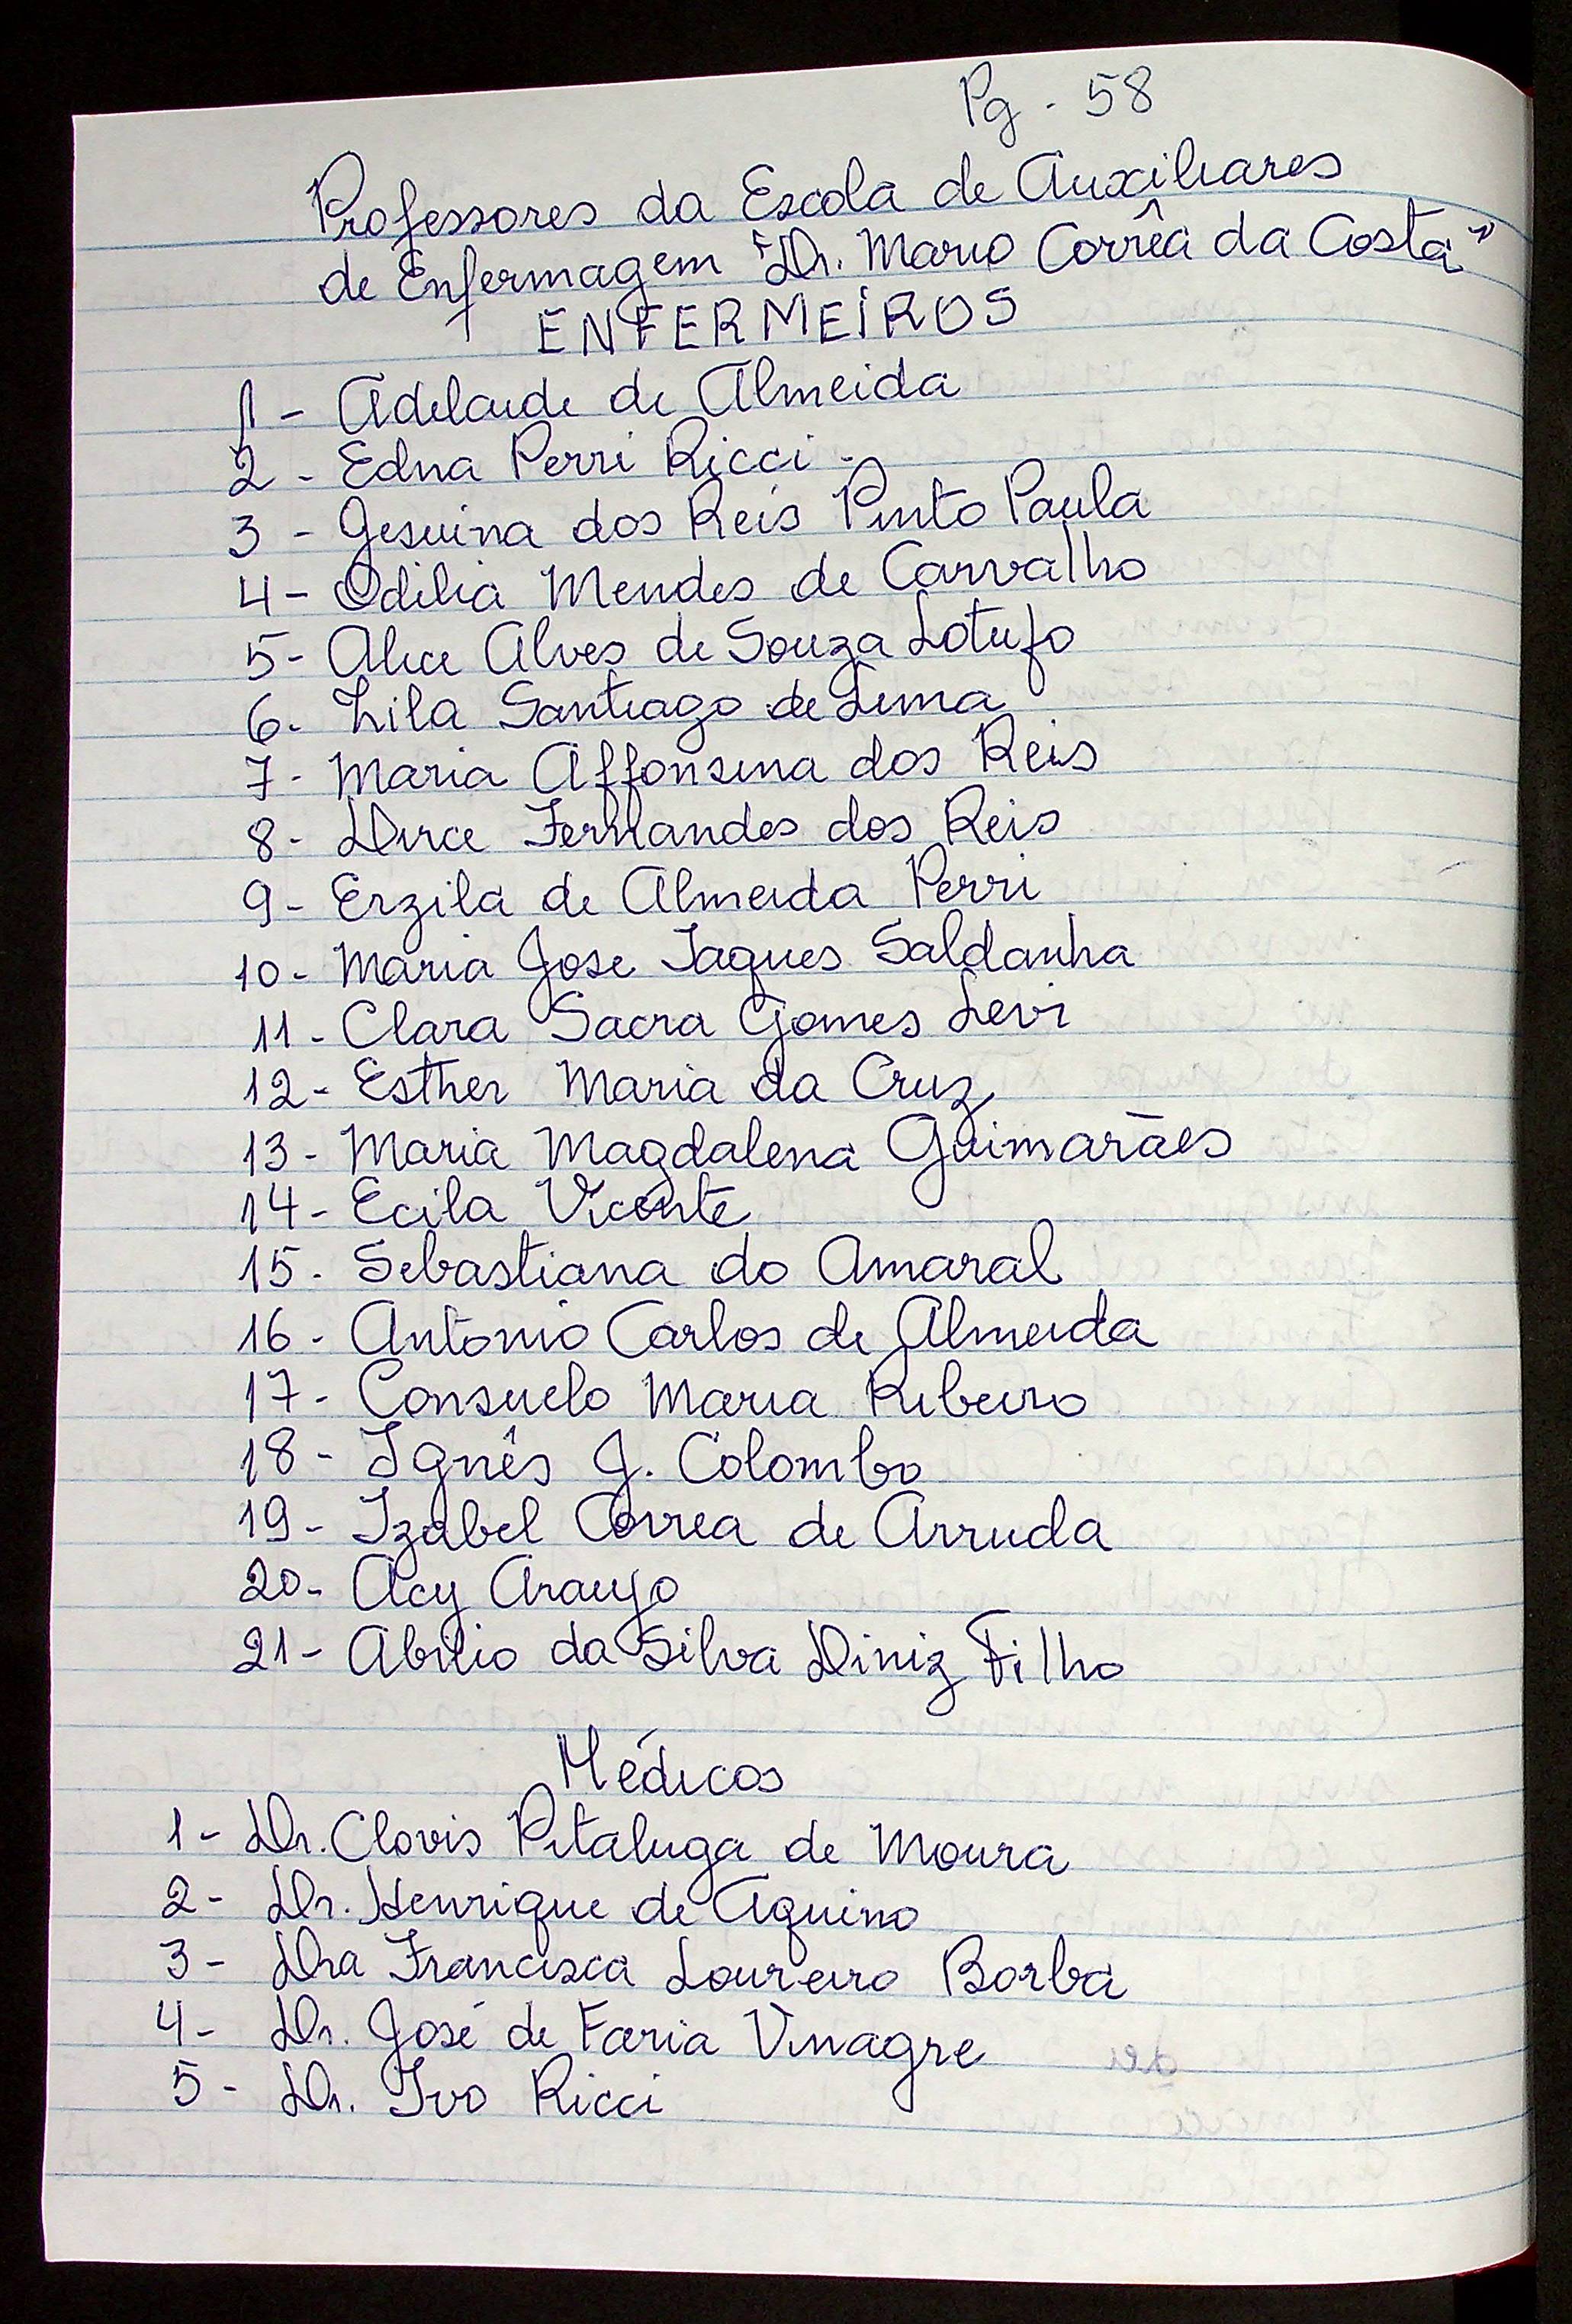 Pg - 58
Professores da Escola de Auxiliares
de Enfermagem "Dr. Mario Corrêa da Costa"
ENFERMEIROS
1 - Adelaide de Almeida
2 - Edna Perri Ricci -
3 - Gesuina dos Reis Pinto Paula
4 - Odilia Mendes de Carvalho
5 - Alice Alves de Souza Lotufo
6 - Lila Santiago de Lima
7 - Maria Affonsina dos Reis
8 - Dirce Fernandes dos Reis
9 - Erzila de Almeida Perri
10 - Maria Jose Jaques Saldanha
11 - Clara Sacra Gomes Levi
12 - Esther Maria da Cruz
13 - Maria Magdalena Guimarães
14 - Ecila Vicente
15 - Sebastiana do Amaral
16 - Antonio Carlos de Almeida
17 - Consuelo Maria Ribeiro
18 - Ignês J. Colombo
19 - Izabel Correa de Arruda
20 - Acy Araujo
21 - Abilio da Silva Diniz Filho
Médicos
1 - Dr. Clovis Pitaluga de Moura
2 - Dr. Henrique de Aquino
3 - Dra Francisca Loureiro Borba
4 - Dr. José de Faria Vinagre
5 - Dr. Ivo Ricci